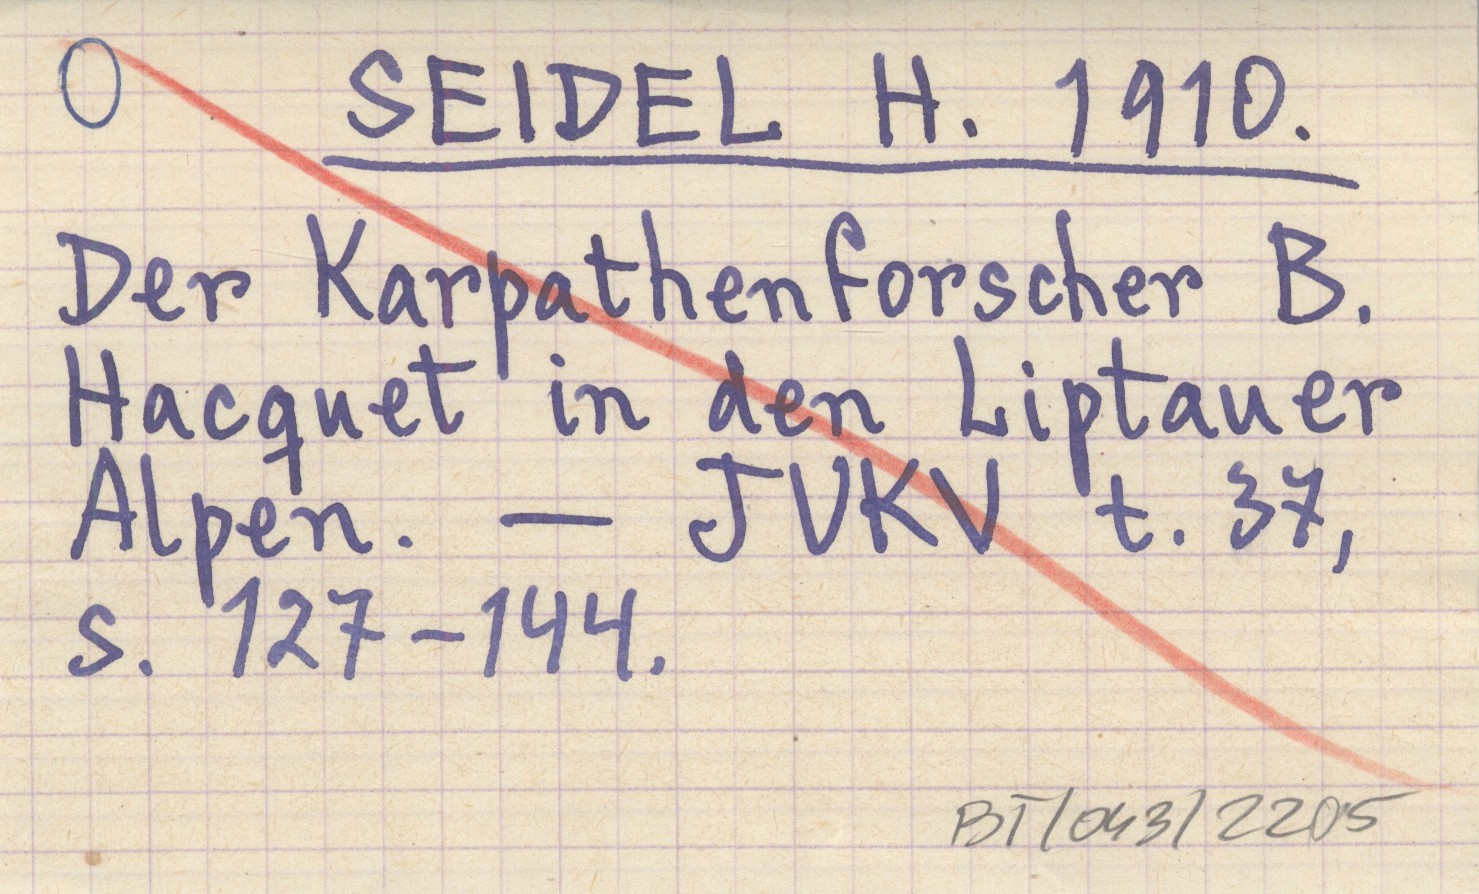 O SEIDEL H. 1910.
Der Karpathenforscher B.
Hacquet in den Liptauer
Alpen. — JUKV t. 37,
s. 127-144.
BT/043/2205